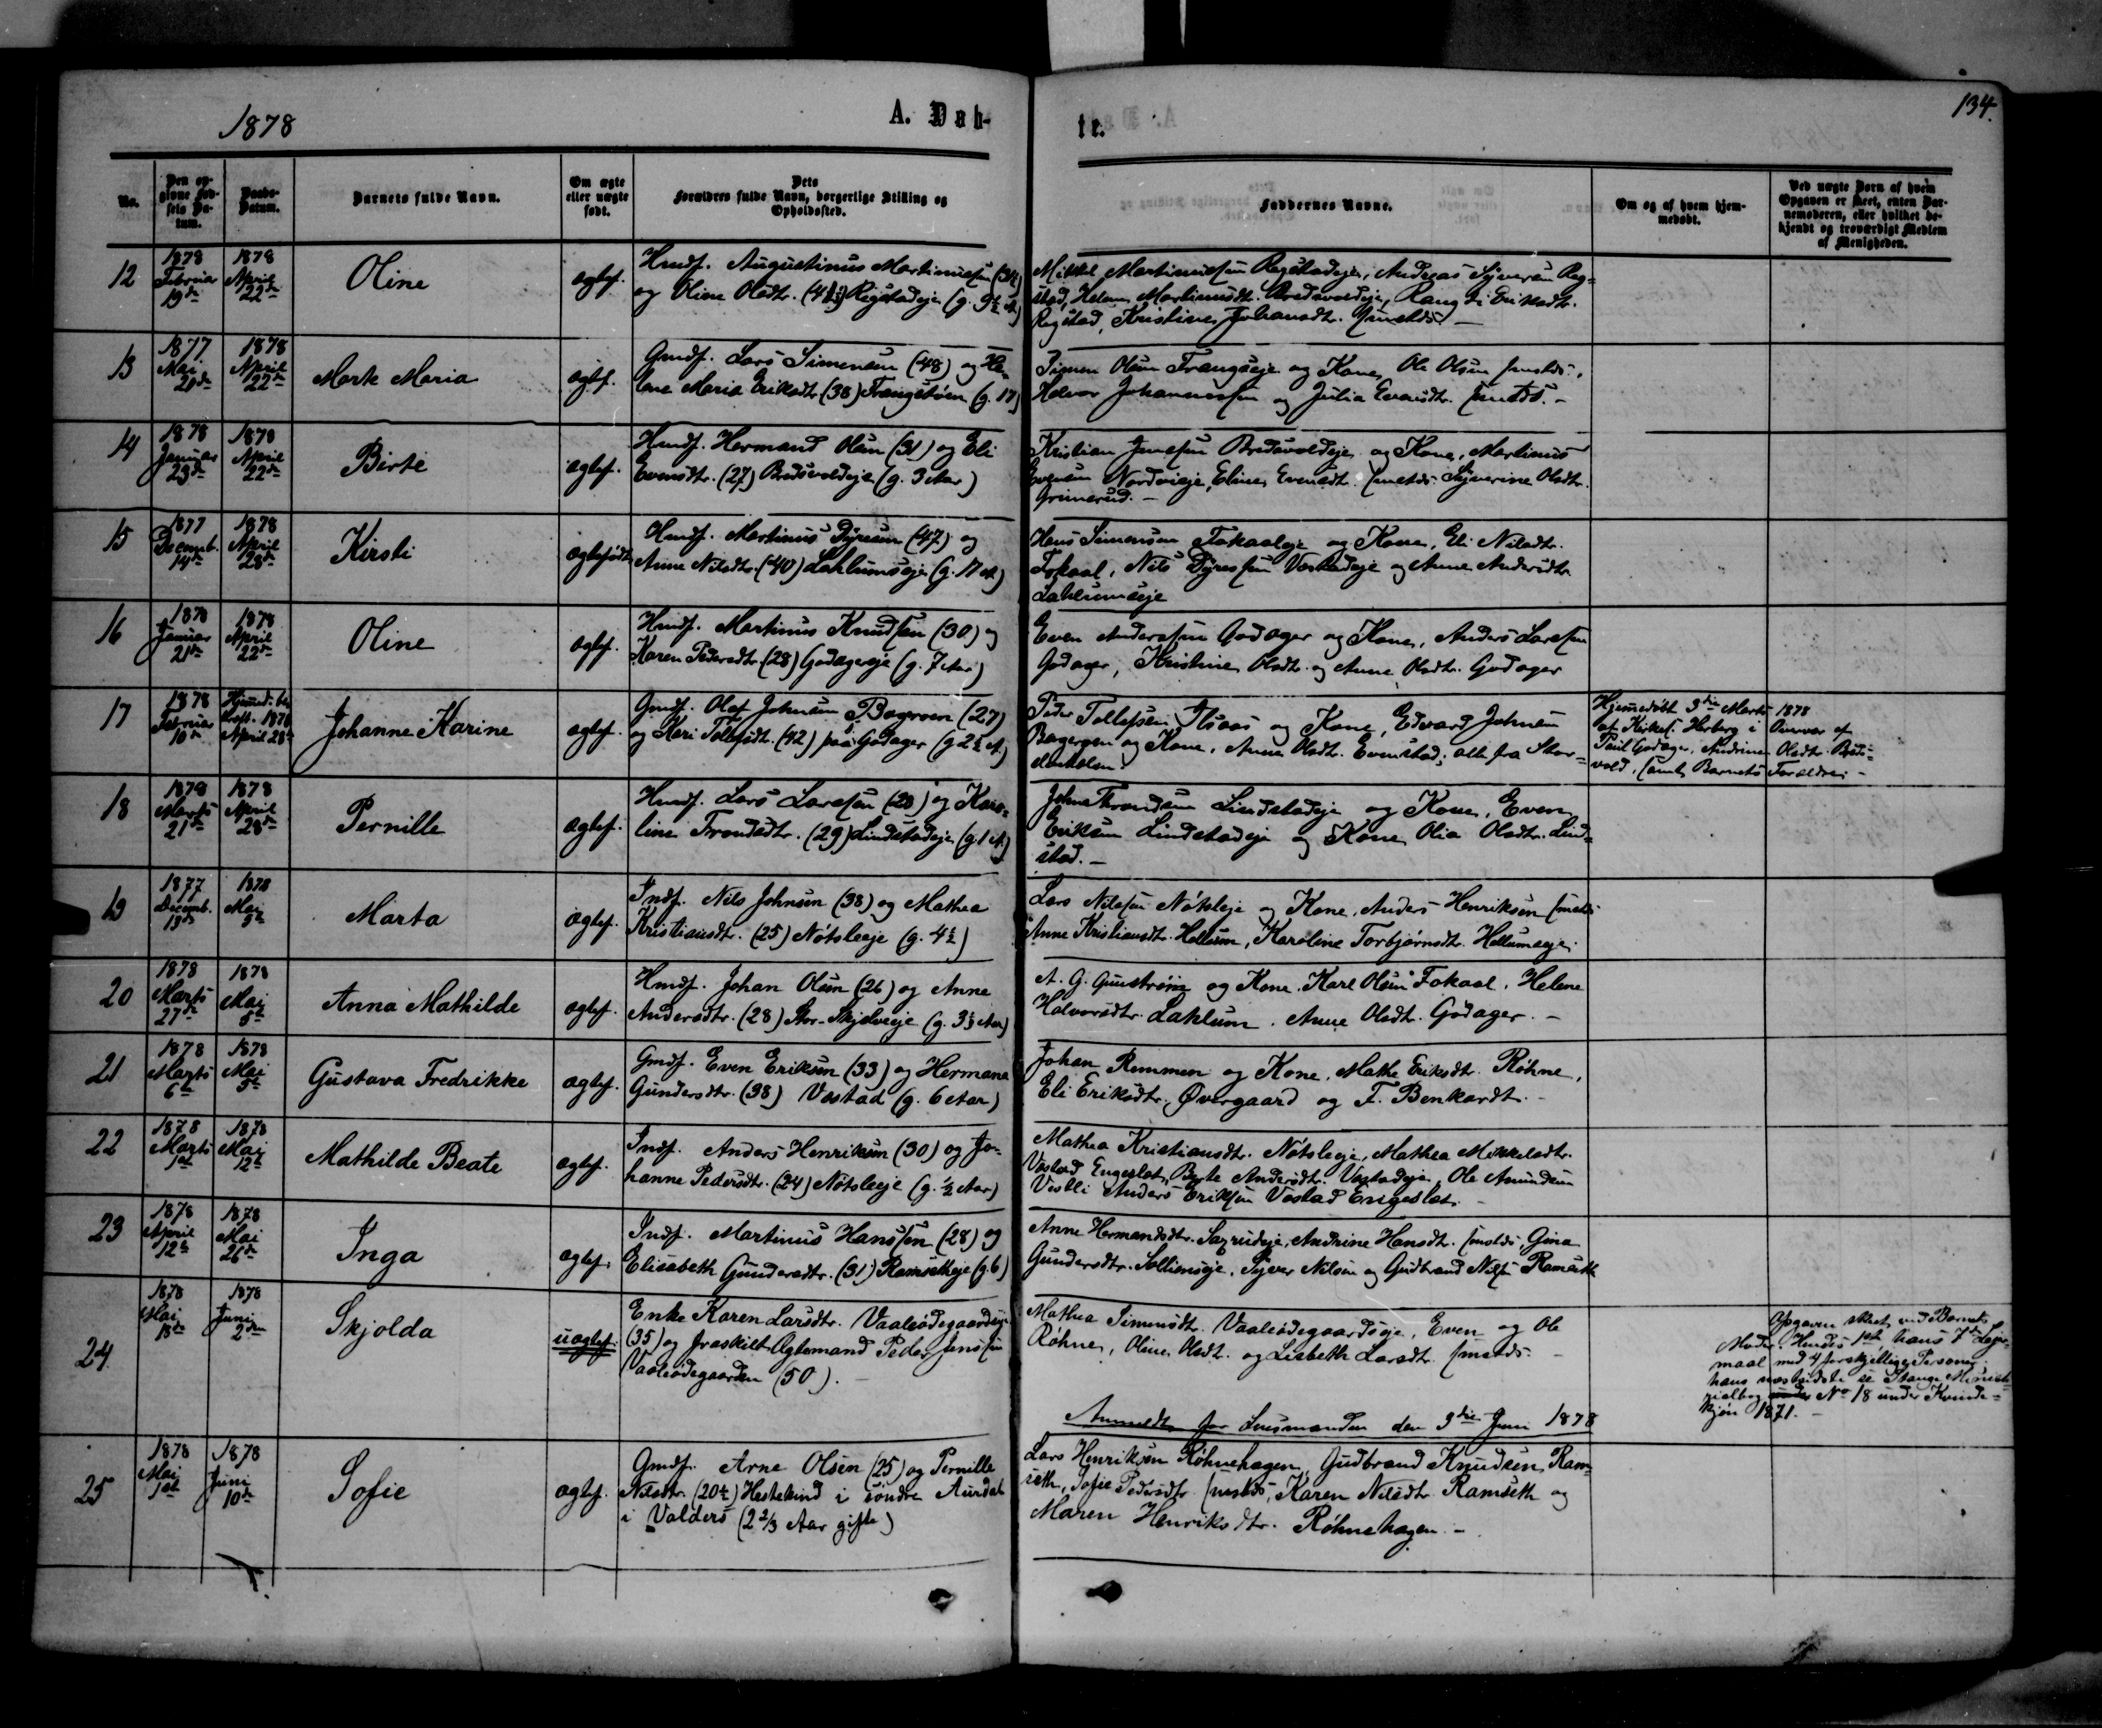 1878
A. Døb-
te.
134.
No.
Den op-
givne Fød-
sels Da-
tum.
Daabs-
Datum.
Barnets fulde Navn.
Om ægte
eller uægte
født.
Dets
Forældres fulde Navn, borgerlige Stilling og
Opholdssted.
Faddernes Navne.
Om og af hvem hjem-
medøbt.
Ved uægte Børn af hvem
Opgaven er skeet, enten Bar-
nemoderen, eller hvilket be-
kjendt og troværdigt Medlem
af Menigheden.
12
1878
Februar
19de
1878
April
22de
Oline
ægtef.
Husf. Augustinus Martinussen
og Oline Olsdt. Regstadeje (g. 9½ A)
Mikkel Martinussen Regstadeje, Andreas Syversen Reg-
stad, Helene Martinusdt. Bredsvoldeje, Rangdi Eriksdt.
Regstad, Kristine Johansdt. smstds. —
13
1877
Mai
20de
1878
April
22de
Marte Maria
ægtef.
Gmdf. Lars Simensen (48) og He-
lene Maria Eriksdtr. (38) Frangstøen (g. 17)
Simen Olsen Frangseje og Kone, Ole Olsen smstds.,
Halvor Johannessen og Julia Evensdtr. smstds. –
14
1878
Januar
23de
1878
April
22de
Birte
ægtef.
Husf. Hermand Olsen (31) og Eli
Evensdtr. (27) Bredsvoldeje (g. 3 Aar)
Kristian Jensen Bredsvoldeje og Kone, Martinus
Evensen Nordvieje, Eline Evensdt. smstds. Syverine Olsdtr.
Grimerud. –
15
1877
Decemb.
14de
1878
April
28de
Kirsti
ægtefødt
Husf. Martinus Dyresen (47) og
Anne Nilsdtr. (40) Lahlumseje (g. 17 A)
Hans Simensen Fokaaleje og Kone, Eli Nilsdtr.
Fokaal, Nils Dyressen Vestadeje og Anne Andersdtr.
Lahlumseje
16
1878
Januar
21de
1878
April
22de
Oline
ægtef.
Husf. Martinus Knudsen (30) og
Karen Pedersdtr. (28) Godagereje (g. 7 Aar)
Even Anderssen Godager og Kone, Anders Larssen
Godager, Kristine Olsdtr. og Anne Olsdtr. Godager
17
1878
Februar
10de
Hjemmed. be-
kræft. 1878
April 28de
Johanne Karine
ægtef.
Gmdf. Olof Johnsen Bagroen (27)
og Kari Tollefsdt. (42) paa Godager (g 2½ A.)
Peder Tollefsen Ilsaas og Kone, Edvard Johnsen
Bagergen og Kone, Anne Olsdt. Evenstad; alle fra Stor-
elvedalen.
Hjemmedøbt 3die Marts 1878
af Kirkes. Herberg i Overvær af
Paul Godager, Andrine Olsdtr. Breds-
vold, samt Barnets Forældre. –
18
1878
Marts
21de
1878
April
28de
Pernille
ægtef.
Husf. Lars Larssen (28) og Karo-
line Trondsdtr. (29) Lindstadeje (g. 1 A.)
Johne Trondsen Lindstadeje og Kone, Even
Eriksen Lindstadeje og Kone Olia Olsdtr. Lind-
stad. –
19
1877
Decemb.
13de
1878
Mai
5te
Marta
ægtef.
Indf. Nils Johnsen (38) og Mathea
Kristiansdtr. (25) Nøtsleeje (g. 4½)
Lars Nilssen Nøtsleje og Kone, Anders Henriksen smstds
Anne Kristiansdt. Hellum, Karoline Torbjørnsdt. Hellumseje.
20
1878
Marts
27de
1878
Mai
5te
Anna Mathilde
ægtef.
Husf. Johan Olsen (26) og Anne
Andersdtr. (28) Stor-Skjelveeje (g. 3½ Aar)
A. G. Gunstrøm og Kone. Karl Olsen Fokaal, Helene
Halvorsdtr. Lahlum. Anne Olsdt. Godager. –
21
1878
Marts
6te
1878
Mai
5te
Gustava Fredrikke
ægtef.
Gmdf. Even Eriksen (33) og Hermana
Gundersdtr. (38) Vestad (g. 6 Aar)
Johan Remmen og Kone, Mathe Eriksdtr. Røhne,
Eli Eriksdtr. Øvergaard og F. Benkardt. –
22
1878
Marts
1ste
1878
Mai
12te
Mathilde Beate
ægtef.
Indf. Anders Henriksen (30) og Jo-
hanne Pedersdtr. (24) Nøtsleeje (g. ½ Aar)
Mathea Kristiansdtr. Nøtsleeje, Mathea Mikkelsdtr.
Vestad Engeslet, Berte Andersdtr. Vestadeje, Ole Amundsen
Vestli Anders Eriksen Vestad Engeslet. –
23
1878
April
12te
1878
Mai
26de
Inga
ægtef.
Indf. Martinus Hanssen (28) og
Elisabeth Gundersdtr. (31) Ramsetheje (g. 6)
Anne Hermandsdtr. Saxrudeje, Andrine Hansdt. smstds. Gina
Gundersdtr. Sollienseje, Syver Nilsen og Gudbrand Nilsen Ramseth
24.
1878
Mai
13de
1878
Juni
2den
Skjolda
uægtef.
Enke Karen Larsdtr. Vaaleødegaardseje
(35) og fraskilt Ægtemand Peder Jenssen
Vaaleødegaarden (50). –
Mathea Simensdt. Vaaleødegaardseje, Even og Ole
Røhne, Oline Olsdt. og Lisbeth Larsdt. smstds. –
Anmeldt for Lensmanden den 3die Juni 1878
Opgaven skeet ved Barnets
Moder. Hendes 1ste, hans 7de Leier-
maal med 4 forskjellige Personer.
hans næstsidste se Stange Ministe-
rialbog No 18 under Kvinde-
kjøn 1871. –
25
1878
Mai
1ste
1878
Juni
10de
Sofie
ægtef.
Gmdf. Arne Olsen (25) og Pernille
Nilsdtr. (20½) Hestekind i søndre Aurdal
i Valders (2 2/3 Aar gifte)
Lars Henriksen Røhnehagen, Gudbrand Knudsen Ram-
seth, Sofie Pedersdtr. smstds, Karen Nilsdtr. Ramseth og
Maren Henriksdtr. Røhnehagen. –